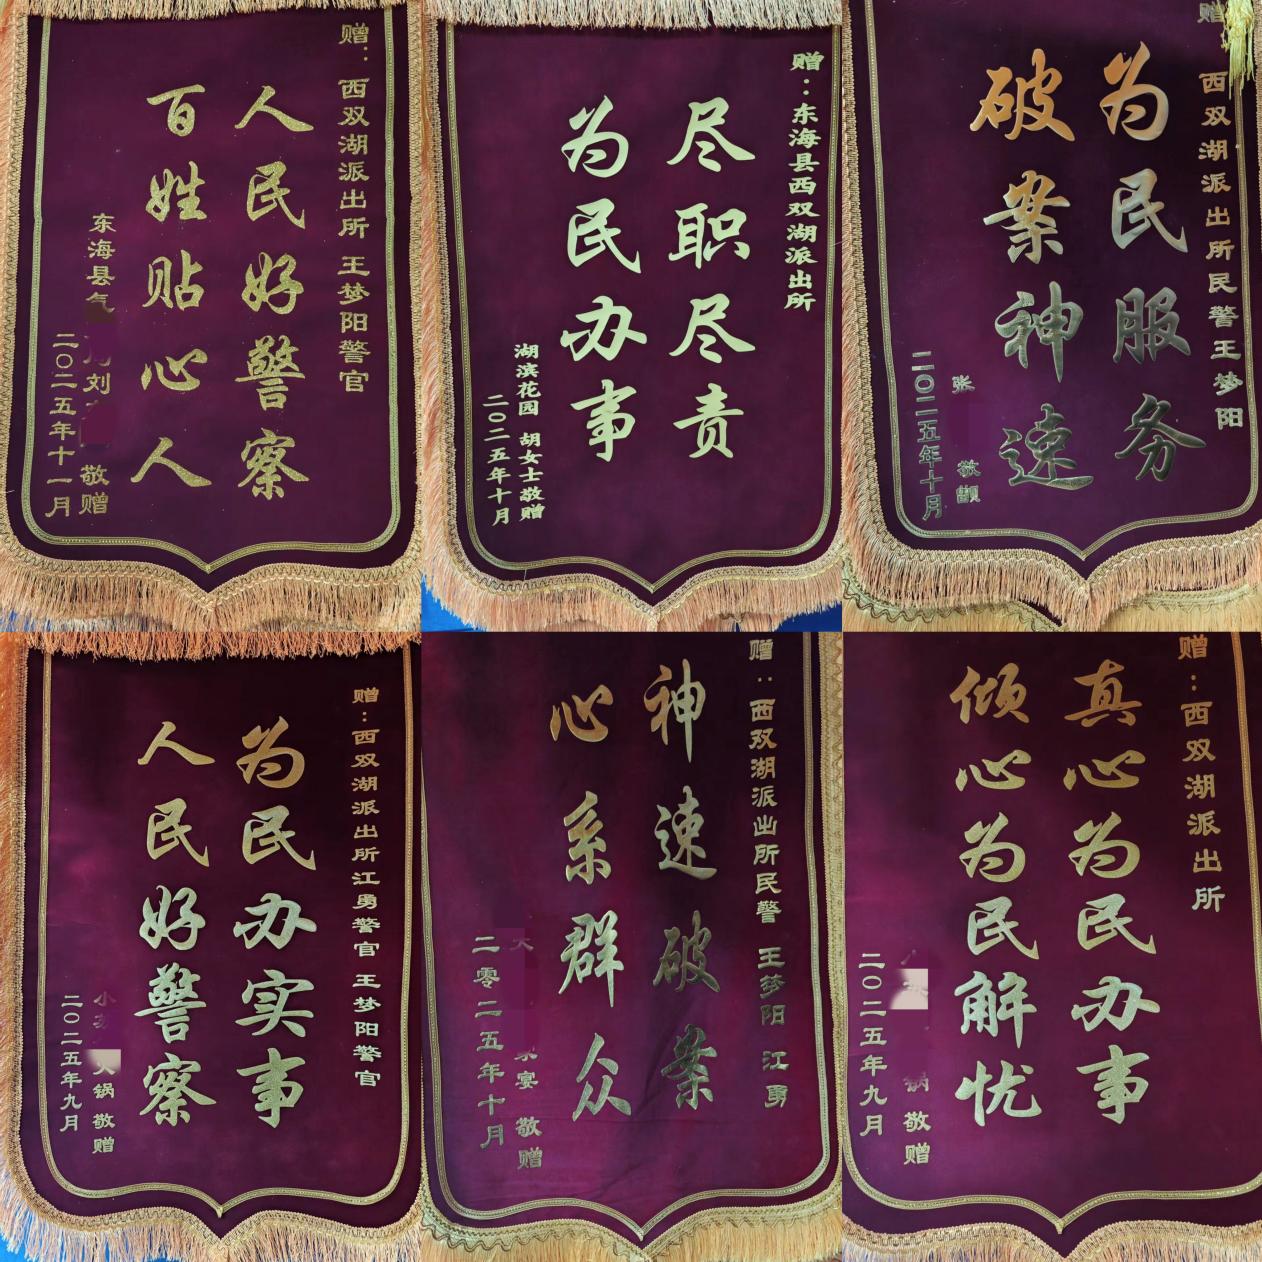 赠：西双湖派出所 王梦阳警官
人民好警察
百姓贴心人
东海县气
刘
敬赠
二〇二五年十一月
赠：东海县西双湖派出所
尽职尽责
为民办事
湖滨花园 胡女士敬赠
二〇二五年十月
赠
西双湖派出所民警王梦阳
为民服务
破案神速
张
敬赠
二〇二五年十月
赠：西双湖派出所江勇警官 王梦阳警官
为民办实事
人民好警察
小
火锅敬赠
二〇二五年九月
赠：西双湖派出所民警 王梦阳 江勇
神速破案
心系群众
宴 敬赠
二零二五年十月
赠：西双湖派出所
真心为民办事
倾心为民解忧
锅敬赠
二〇二五年九月